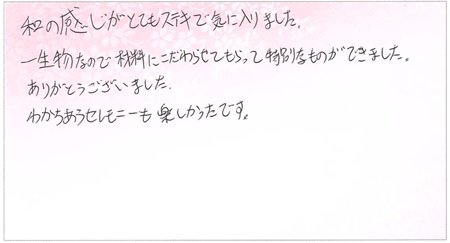 和の感じがとてもステキで気に入りました。
一生物なので材料にこだわらせてもらって特別なものができました。
ありがとうございました。
わかちあうセレモニーも楽しかったです。